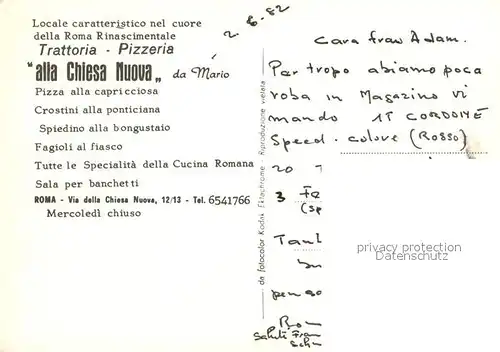 Locale caratteristico nel cuore
della Roma Rinascimentale
Trattoria - Pizzeria
"alla Chiesa Nuova„ da Mario
Pizza alla capricciosa
Crostini alla ponticiana
Spiedino alla bongustaio
Fagioli al fiasco
Tutte le Specialità della Cucina Romana
Sala per banchetti
ROMA - Via della Chiesa Nuova, 12/13 - Tel. 6541766
Mercoledì chiuso
da fotocolor Kodak Ektachrome - Riproduzione vietata
2-6-82
Cara frau Adam.
Per tropo abiamo poca
roba in Magazino vi
mando 15 CORDONÉ
Speed. colore (ROSSO)
20 -
3
(Sp
Tant
penso
Rom
Saluti Fran
privacy protection
Datenschutz